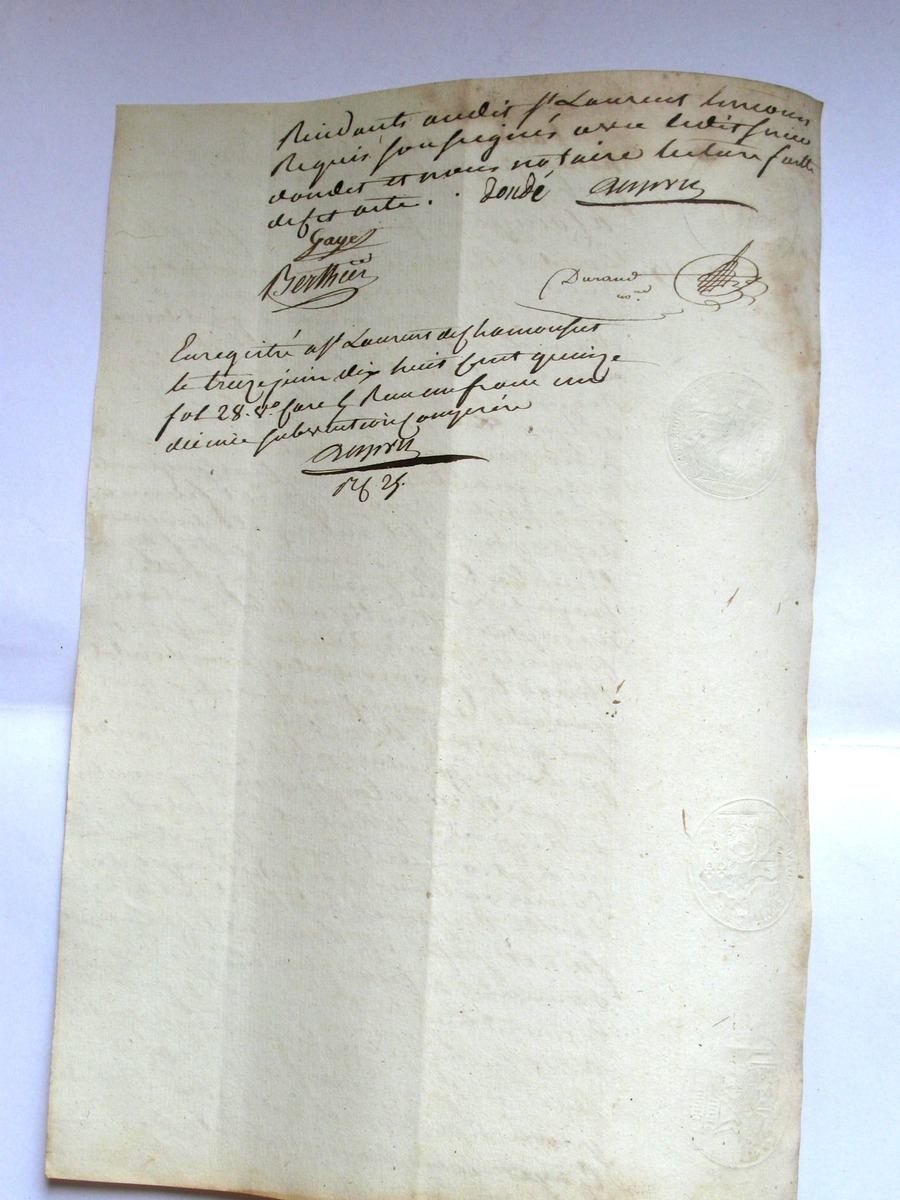 Residants audit st Laurent temoins
Requis soussignés avec ledit sieur
dondé et nous notaire lecture faitte
defet acte. . dondé
Gayet
Berthier
Durand nre
Enregistré a st Laurent de Chamousset
le treize juin dix huit cent quinze
fol 28. vo case 5 Reçu un franc un
decime subvention comprise